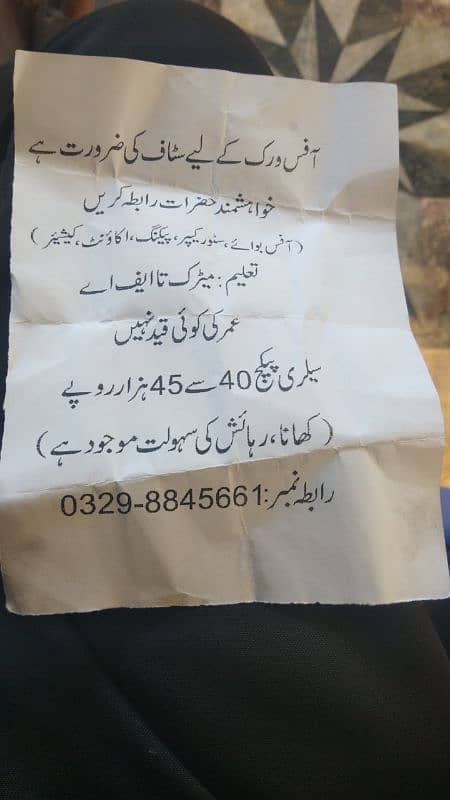 آفس ورک کے لیے سٹاف کی ضرورت ہے
خواہشمند حضرات رابطہ کریں
(آفس بوائے، سٹور کیپر، پیکنگ، اکاؤنٹ، کیشیئر)
تعلیم: میٹرک تا ایف اے
عمر کی کوئی قید نہیں
سیلری پیکج 40 سے 45 ہزار روپے
(کھانا، رہائش کی سہولت موجود ہے)
رابطہ نمبر: 0329-8845661